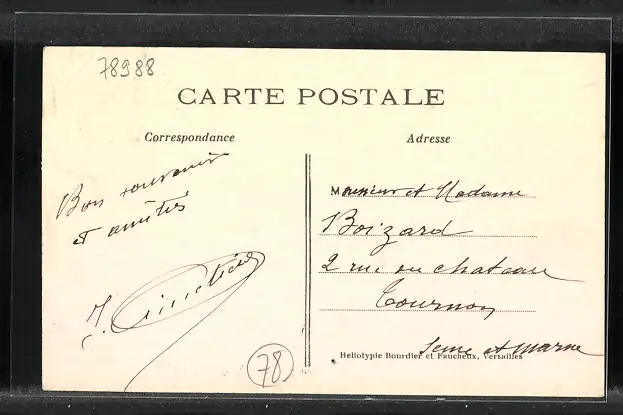 78988
CARTE POSTALE
Correspondance
Adresse
Bon souvenir
et amitiés
Monsieur et Madame
Boizard
2 rue du chateau
Tournon
Seine et Marne
78
Heliotypie Bourdier et Faucheux, Versailles